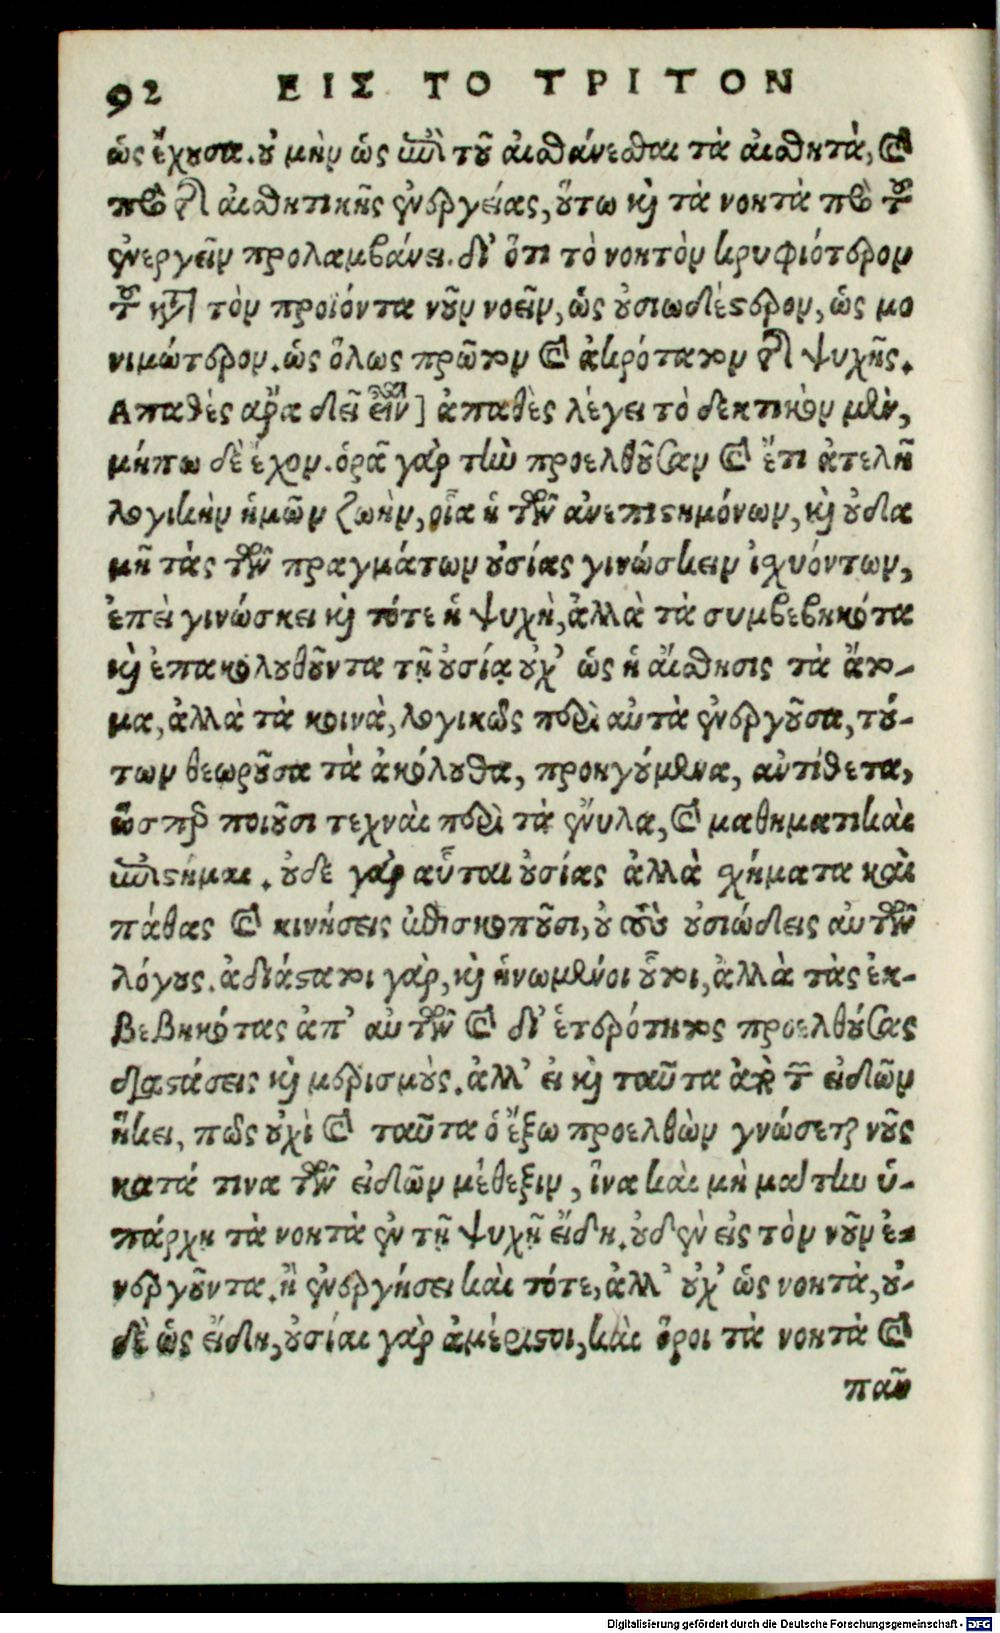 92 ΕΙΣ ΤΟ ΤΡΙΤΟΝ
ὡς ἔχουσα. οὐ μὴν ὡς ἐπὶ τοῦ αἰσθάνεσθαι τὰ αἰσθητὰ, καὶ
πρὸ τῆς αἰσθητικῆς ἐνεργείας, οὕτω καὶ τὰ νοητὰ πρὸ τοῦ
ἐνεργεῖν προλαμβάνει. δι’ ὅτι τὸ νοητὸν κρυφιότερον
τοῦ κατὰ τὸν προϊόντα νοῦν νοεῖν, ὡς οὐσιωδέστερον, ὡς μο
νιμώτερον. ὡς ὅλως πρῶτον καὶ ἀκρότατον τῆς ψυχῆς.
Απαθὲς ἄρα δεῖ εἶναι] ἀπαθὲς λέγει τὸ δεκτικὸν μὲν,
μήπω δὲ ἔχον. ὁρᾷ γὰρ τὴν προελθοῦσαν καὶ ἔτι ἀτελῆ
λογικὴν ἡμῶν ζωὴν, οἵα ἡ τῶν ἀνεπιστημόνων, καὶ οὐδα
μῆ τὰς τῶν πραγμάτων οὐσίας γινώσκειν ἰσχυόντων,
ἐπεὶ γινώσκει καὶ τότε ἡ ψυχὴ, ἀλλὰ τὰ συμβεβηκότα
καὶ ἐπακολουθοῦντα τῇ οὐσίᾳ οὐχ’ ὡς ἡ αἴσθησις τὰ ἄτο-
μα, ἀλλὰ τὰ κοινὰ, λογικῶς περὶ αὐτὰ ἐνεργοῦσα, τού-
των θεωροῦσα τὰ ἀκόλουθα, προηγούμενα, ἀντίθετα,
ὥσπερ ποιοῦσι τεχνὰι περὶ τὰ ἔνυλα, καὶ μαθηματικὰι
ἐπιστήμαι. οὐδε γὰρ αὗται οὐσίας ἀλλὰ σχήματα καὶ
πάθας καὶ κινήσεις ἐπισκοποῦσι, οὐ τοὺς οὐσιώδεις αὐτῶν
λόγους. ἀδιάστατοι γὰρ, καὶ ἡνωμένοι οὗτοι, ἀλλὰ τὰς ἐκ-
βεβηκότας ἀπ’ αὐτῶν καὶ δι’ ἑτερότητος προελθούσας
διαστάσεις καὶ μερισμούς. ἀλλ’ ει καὶ ταῦτα ἀπὸ τῶν εἰδῶν
ἥκει, πῶς οὐχὶ καὶ ταῦτα ὁ ἔξω προελθὼν γνώσεται νοῦς
κατά τινα τῶν εἰδῶν μέθεξιν, ἵνα καὶ μὴ μάτην ὑ-
πάρχῃ τὰ νοητὰ ἐν τῇ ψυχῇ εἴδη. οὐδὲν εἰς τὸν νοῦν ἐ-
νεργοῦντα. ἢ ἐνεργήσει καὶ τότε, ἀλλ’ οὐχ’ ὡς νοητὰ, οὐ-
δὲ ὡς εἴδη, οὐσίαι γὰρ ἀμέριστοι, καὶ ὅροι τὰ νοητὰ καὶ
Digitalisierung gefördert durch die Deutsche Forschungsgemeinschaft - DFG